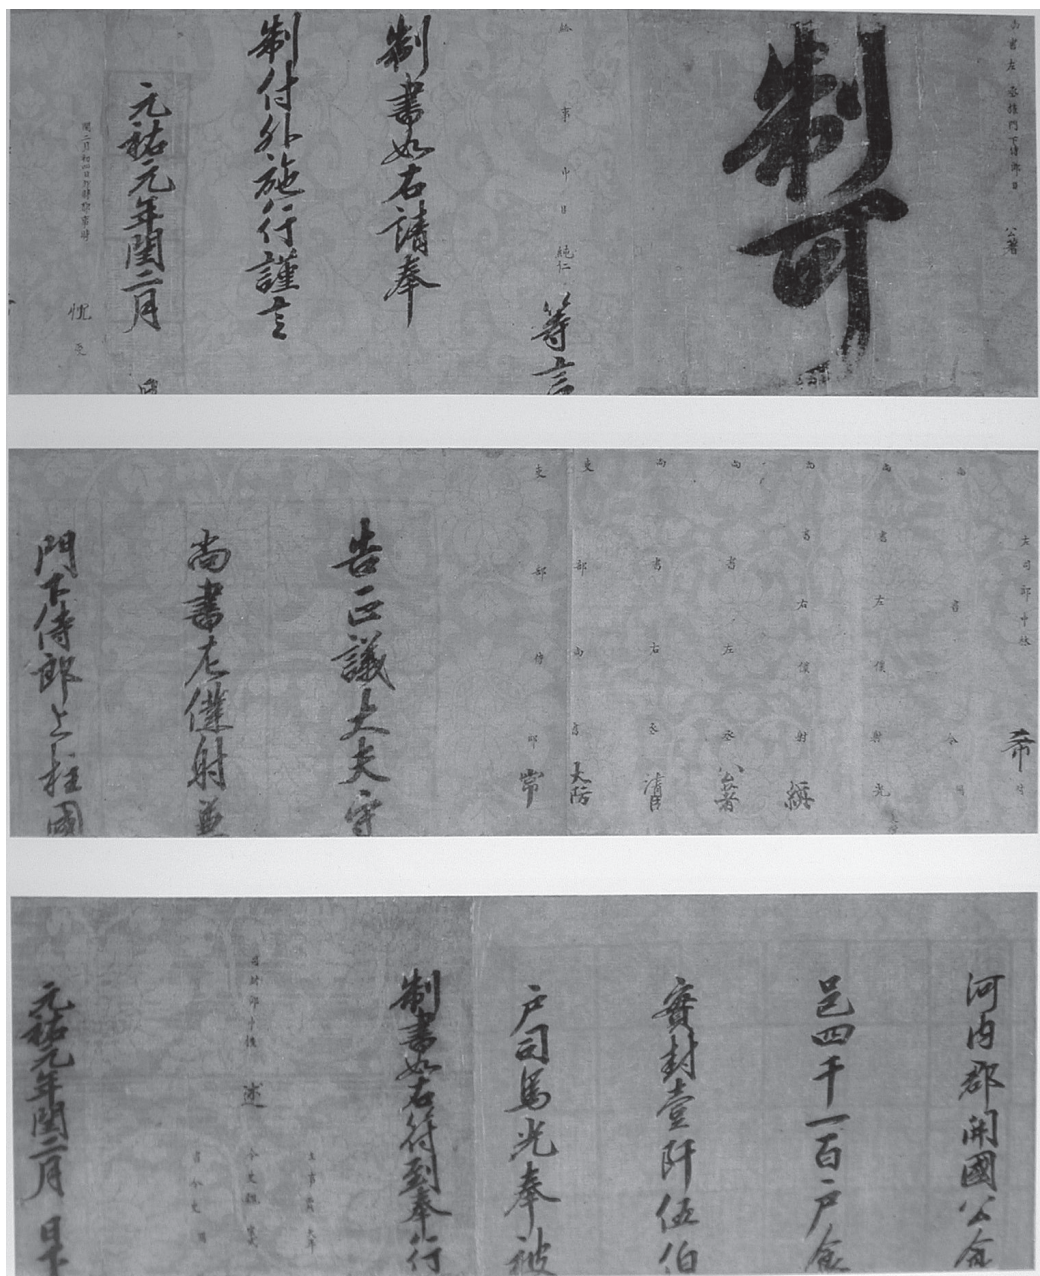 尚書左丞權門下侍郎
公著
制可
給事中臣
純仁
等言
制書如右請奉
制付外施行謹言
元祐元年閏二月
閏二月初四日
左司郎中林
希
尚書令闕
尚書左僕射光
尚書右僕射縝
尚書左丞公著
尚書右丞清臣
吏部尚書大防
吏部侍郎常
告正議大夫守
尚書左僕射兼
門下侍郎上柱國
河内郡開國公食
邑四千一百户食
實封壹阡伍伯
户司馬光奉被
制書如右符到奉行
主事
司封郎中
述
令史
書令史
元祐元年閏二月 日下